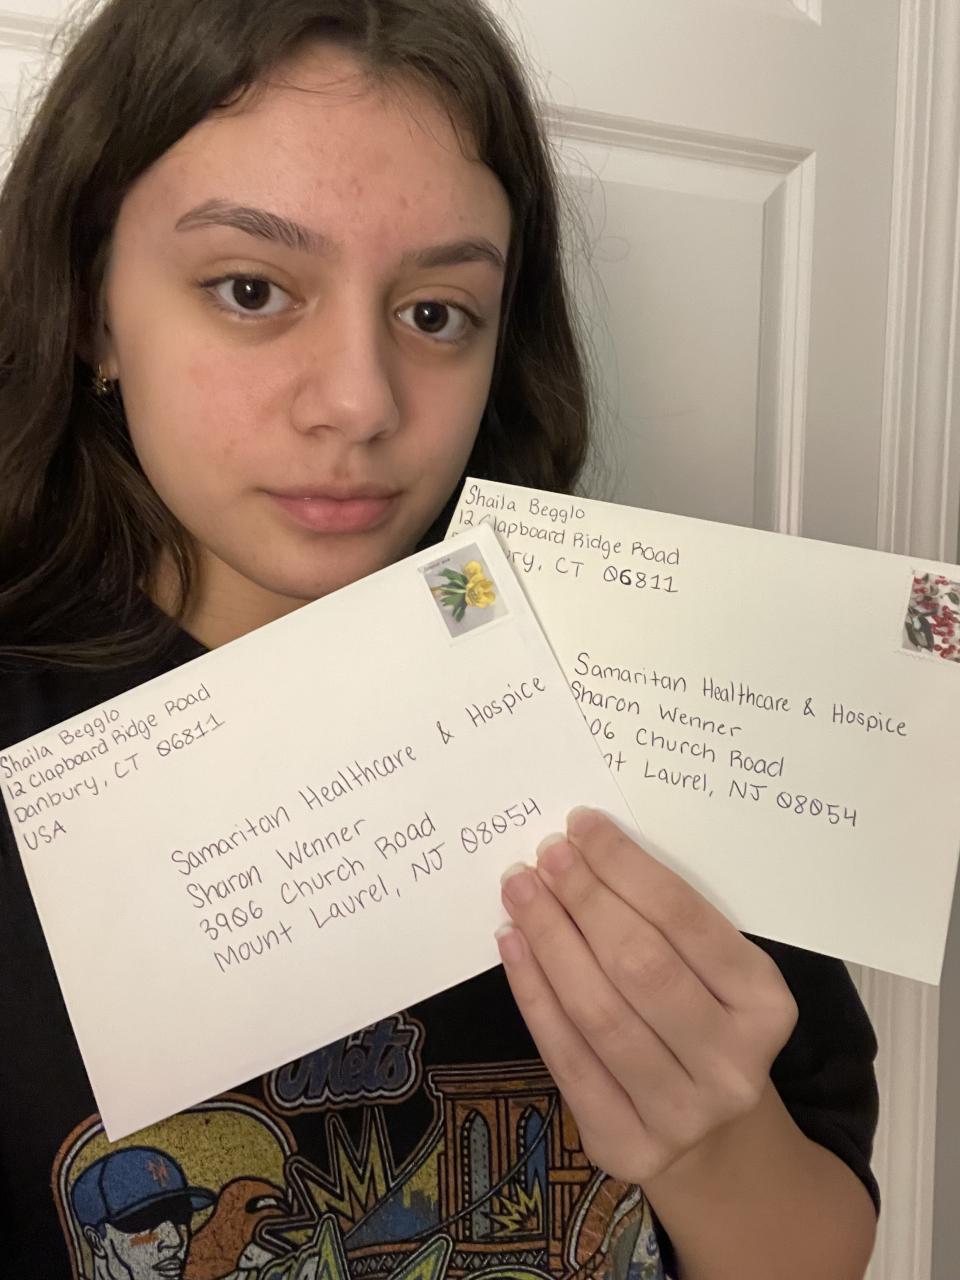 Shaila Begglo
12 Clapboard Ridge Road
Danbury, CT 06811
USA
Samaritan Healthcare & Hospice
Sharon Wenner
3906 Church Road
Mount Laurel, NJ 08054
Shaila Begglo
12 Clapboard Ridge Road
ry, CT 06811
Samaritan Healthcare & Hospice
Sharon Wenner
06 Church Road
nt Laurel, NJ 08054
Mets